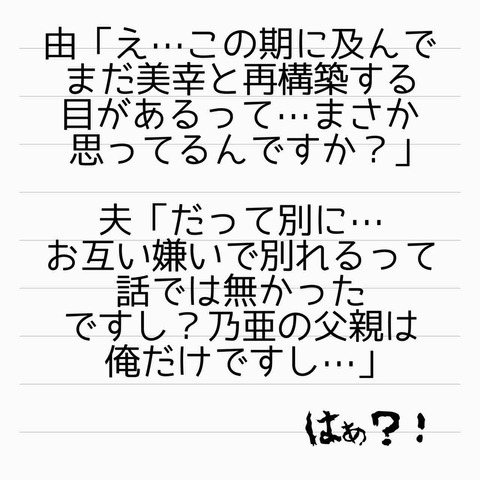 由「え…この期に及んで
まだ美幸と再構築する
目があるって…まさか
思ってるんですか？」
夫「だって別に…
お互い嫌いで別れるって
話では無かった
ですし？乃亜の父親は
俺だけですし…」
はぁ？！